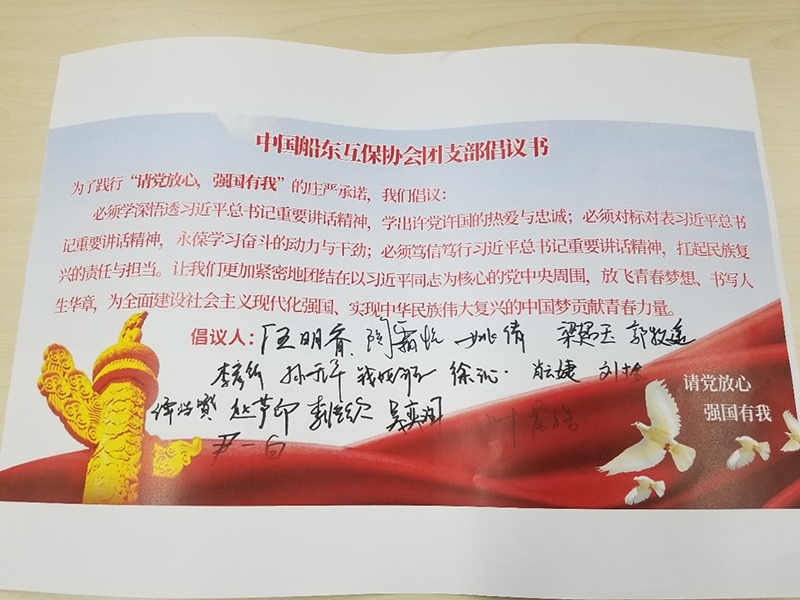 中国船东互保协会团支部倡议书
为了践行“请党放心，强国有我”的庄严承诺，我们倡议：
必须学深悟透习近平总书记重要讲话精神，学出许党许国的热爱与忠诚；必须对标对表习近平总书
记重要讲话精神，永葆学习奋斗的动力与干劲；必须笃信笃行习近平总书记重要讲话精神，扛起民族复
兴的责任与担当。让我们更加紧密地团结在以习近平同志为核心的党中央周围，放飞青春梦想、书写人
生华章，为全面建设社会主义现代化强国、实现中华民族伟大复兴的中国梦贡献青春力量。
倡议人：
姚倩
尹一白
请党放心
强国有我